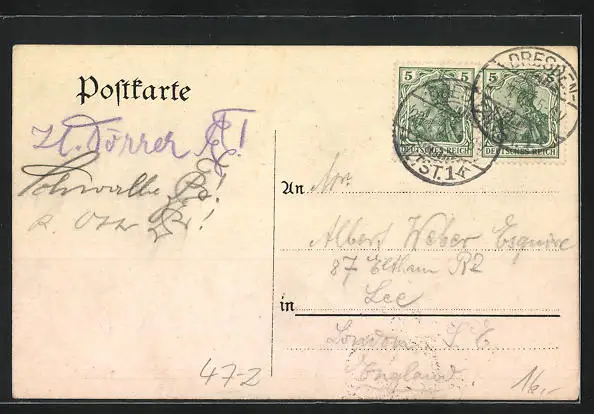 Postkarte
H. Dörrer
Schwalbe
An Mr.
Albert Weber Esquire
87 Eltham Rd
in Lee
London S. E.
England
47-2
5
DEUTSCHES REICH
5
DEUTSCHES REICH
DRESDEN-
ST. 14